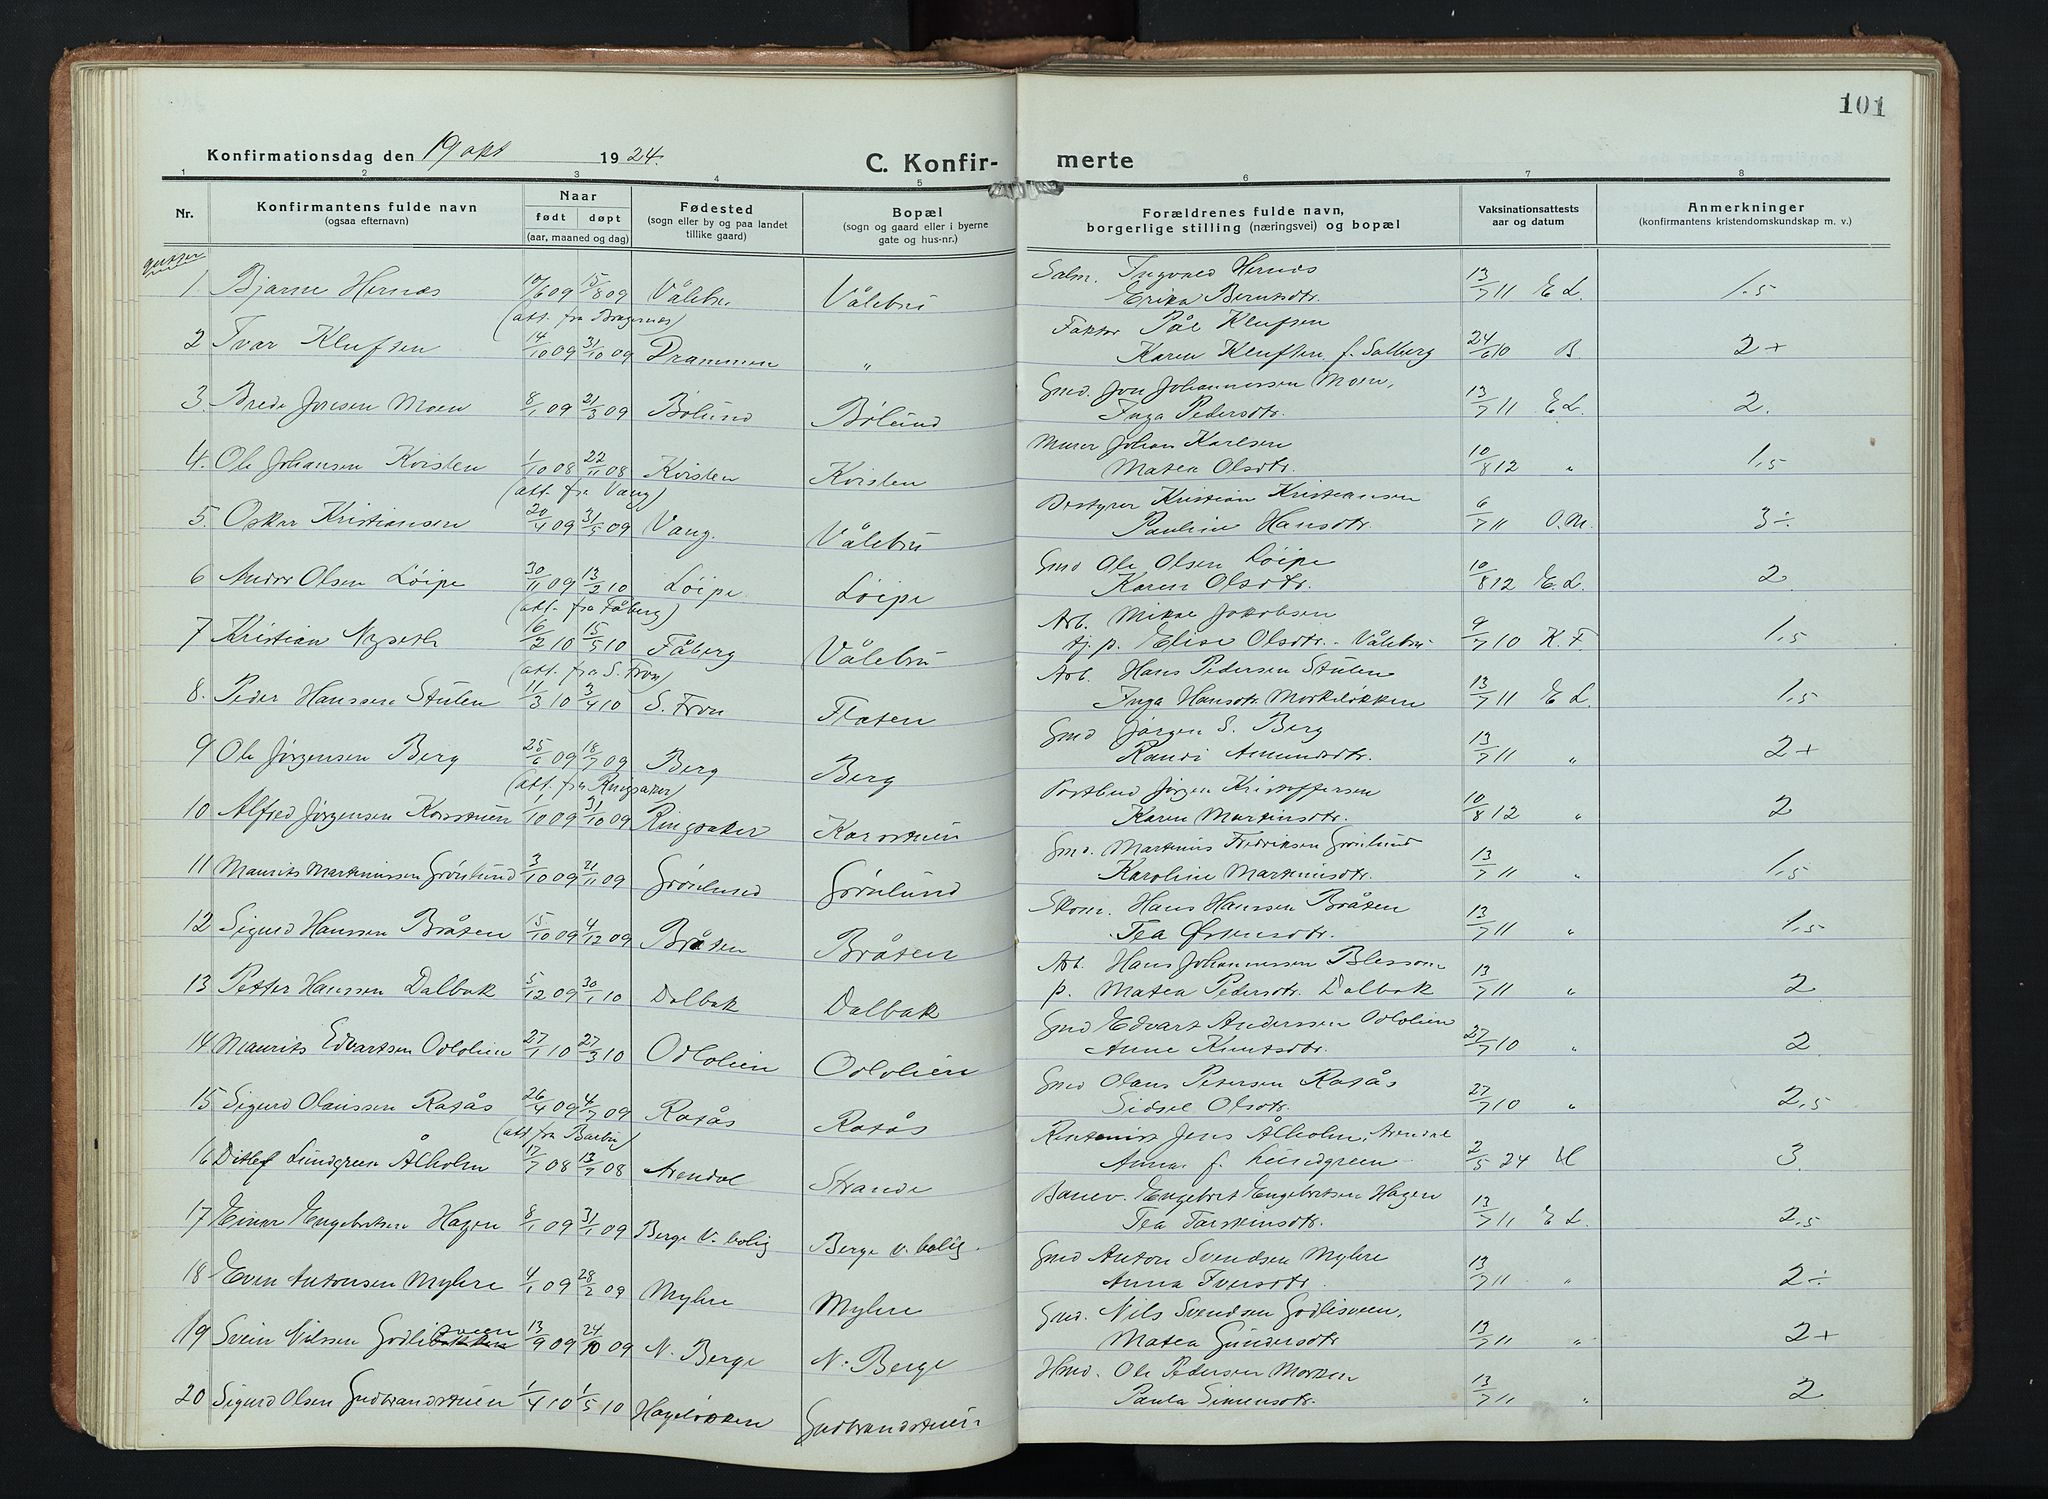 101
Konfirmationsdag den 19 okt 1924.
C. Konfir- merte
1 2 3 4 5 6 7 8
Nr.
Konfirmantens fulde navn
(ogsaa efternavn)
Naar
født døpt
(aar, maaned og dag)
Fødested
(sogn eller by og paa landet
tillike gaard)
Bopæl
(sogn og gaard eller i byerne
gate og hus-nr.)
Forældrenes fulde navn,
borgerlige stilling (næringsvei) og bopæl
Vaksinationsattests
aar og datum
Anmerkninger
(konfirmantens kristendomskundskap m. v.)
gutter
Salm. Ingvald Hernæs
1 Bjarne Hernæs 10/6 09 15/8 09 Vålebr. Vålebru Erika Berntsdtr. 13/7 11 E L. 1.5
(att. fra Bragernes) Faktor Pål Klufsen
2 Ivar Klufsen 14/10 09 31/10 09 Drammen " Karen Klufsen f. Solberg 24/6 10 B 2+
Gmd. Jon Johannessen Moen,
3. Brede Jonsen Moen 8/1 09 21/3 09 Bølund Bølund Inga Pedersdtr. 13/7 11 E L. 2.
Murer Johan Karlsen
4. Ole Johansen Kvislen 1/10 08 22/11 08 Kvislen Kvislen Matea Olsdtr. 10/8 12 " 1,5
(att. fra Vang) Bestyrer Kristian Kristiansen
5. Oskar Kristiansen 20/4 09 31/5 09 Vang. Vålebru Pauline Hansdtr. 6/7 11 O.M. 3÷
Gmd Ole Olsen Løipe
6 Andor Olsen Løipe 30/11 09 13/2 10 Løipe Løipe Karen Olsdtr. 10/8 12 E L. 2
(att. fra Fåberg) Arb. Mikal Jakobsen
7 Kristian Nyseth 16/2 10 15/5 10 Fåberg Vålebru fj. p. Elise Olsdtr. Vålebru 9/7 10 K.F. 1,5
(att. fra S. Fron) Arb. Hans Pedersen Stulen
8. Peder Hanssen Stulen 11/3 10 3/4 10 S. Fron Flaten Inga Hansdtr. Mørkeløkken 13/7 11 E L. 1,5
Gmd Jørgen S. Berg
9 Ole Jørgensen Berg 25/6 09 18/7 09 Berg Berg Randi Amundsdtr. 13/7 11 " 2+
(att. fra Ringsaker) Postbud Jørgen Kristoffersen
10 Alfred Jørgensen Korsstuen 1/10 09 31/10 09 Ringsaker Korsstuen Karen Martinsdtr. 10/8 12 " 2
Gmd. Martinus Fredriksen Grønlund
11 Maurits Martinussen Grønlund 3/10 09 21/11 09 Grønlund Grønlund Karoline Martinsdtr. 13/7 11 " 1,5
Skom. Hans Hanssen Bråten
12 Sigurd Hanssen Bråten 15/10 09 4/12 09 Bråten Bråten Tea Østensdtr. 13/7 11 " 1,5
Arb. Hans Johannessen Blessom
13 Petter Hanssen Dalbak 5/12 09 30/1 10 Dalbak Dalbak p. Matea Pedersdtr. Dalbak 13/7 11 " 2
Gmd Edvart Anderssen Odlolien
14 Maurits Edvartsen Odlolien 27/1 10 27/3 10 Odlolien Odlolien Anne Knutsdtr. 27/7 10 " 2
Gmd Olaus Petersen Rotås
15 Sigurd Olaussen Rotås 26/4 09 4/7 09 Rotås Rotås Sidsel Olsdtr. 27/7 10 " 2,5
(att fra Barbu) Rentenist Jens Ålholm, Arendal
16 Ditlef Lundgreen Ålholm 17/7 08 13/9 08 Arendal Strande Anna f. Lundgreen 2/5 24 H 3.
Banev. Engebret Engebretsen Hagen
17 Einar Engebretsen Hagen 8/1 09 31/1 09 Berge v. bolig Berge v. bolig. Tea Torsteinsdtr. 13/7 11 E L. 2,5
Gmd Anton Svendsen Myhre
18 Even Antonsen Myhre 4/1 09 28/2 09 Myhre Myhre Anna Iversdtr. 13/7 11 " 2÷
Gmd. Nils Svendsen Godlisveen,
19 Svein Nilssen Godlisveen 13/9 09 24/10 09 N. Berge N. Berge Matea Gundersdtr. 13/7 11 " 2+
Hmd. Ole Pedersen Morken
20 Sigurd Olsen Gudbrandstuen 1/4 10 1/5 10 Hageløkken Gudbrandstuen Paula Simensdtr. 13/7 11 " 2